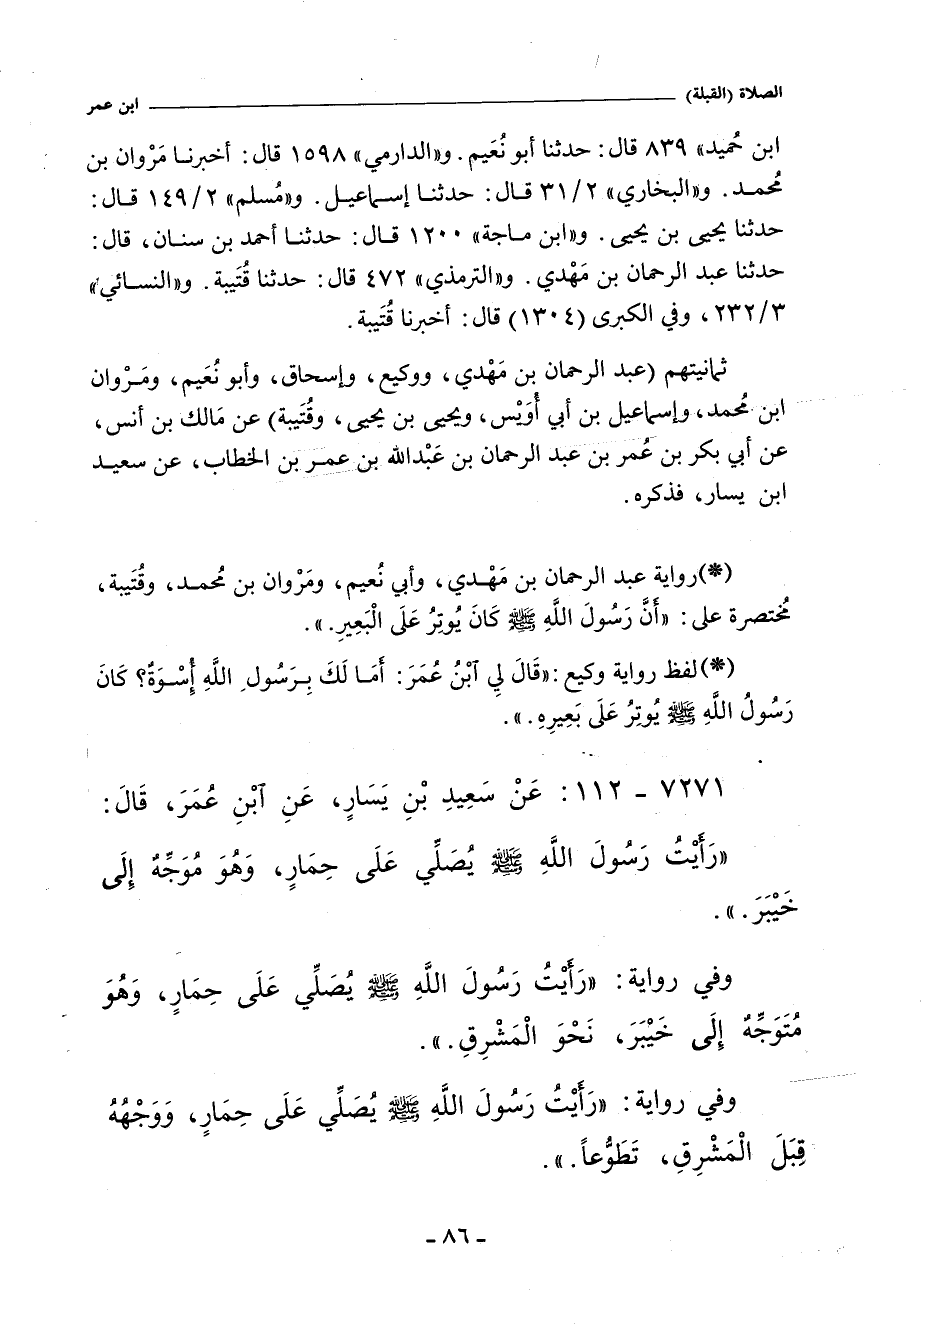 الصلاة (القبلة) ابن عمر
ابن حُميد» ٨٣٩ قال: حدثنا أبو نُعَيم. و«الدارمي» ١٥٩٨ قال: أخبرنا مَرْوان بن
مُحمد. و«البخاري» ٣١/٢ قال: حدثنا إسماعيل. و«مُسلم» ١٤٩/٢ قال:
حدثنا يحيى بن يحيى. و«ابن ماجة» ١٢٠٠ قال: حدثنا أحمد بن سنان، قال:
حدثنا عبد الرحمان بن مَهْدي. و«الترمذي» ٤٧٢ قال: حدثنا قُتَيبة. و«النسائي»
٢٣٢/٣، وفي الكبرى (١٣٠٤) قال: أخبرنا قُتَيبة.
ثمانيتهم (عبد الرحمان بن مَهْدي، ووكيع، وإسحاق، وأبو نُعَيم، ومَرْوان
ابن مُحمد، وإسماعيل بن أبي أُوَيْس، ويحيى بن يحيى، وقُتَيبة) عن مَالك بن أنس،
عن أبي بكر بن عُمر بن عبد الرحمان بن عَبْدالله بن عمر بن الخطاب، عن سعيد
ابن يسار، فذكره.
(*) رواية عبد الرحمان بن مَهْدي، وأبي نُعيم، ومَرْوان بن مُحمد، وقُتَيبة،
مُختصرة على: «أَنَّ رَسُولَ اللَّهِ ﷺ كَانَ يُوتِرُ عَلَى الْبَعِيرِ.».
(*) لفظ رواية وكيع: «قَالَ لِي ٱبْنُ عُمَرَ: أَمَا لَكَ بِرَسُولِ اللَّهِ إُسْوَةٌ؟ كَانَ
رَسُولُ اللَّهِ ﷺ يُوتِرُ عَلَى بَعِيرِهِ.».
٧٢٧١ - ١١٢: عَنْ سَعِيدِ بْنِ يَسَارٍ، عَنِ ٱبْنِ عُمَرَ، قَالَ:
«رَأَيْتُ رَسُولَ اللَّهِ ﷺ يُصَلِّي عَلَى حِمَارٍ، وَهُوَ مُوَجِّهٌ إِلَى
خَيْبَرَ.».
وفي رواية: «رَأَيْتُ رَسُولَ اللَّهِ ﷺ يُصَلِّي عَلَى حِمَارٍ، وَهُوَ
مُتَوَجِّهٌ إِلَى خَيْبَرَ، نَحْوَ الْمَشْرِقِ.».
وفي رواية: «رَأَيْتُ رَسُولَ اللَّهِ ﷺ يُصَلِّي عَلَى حِمَارٍ، وَوَجْهُهُ
قِبَلَ الْمَشْرِقِ، تَطَوُّعاً.».
- ٨٦ -